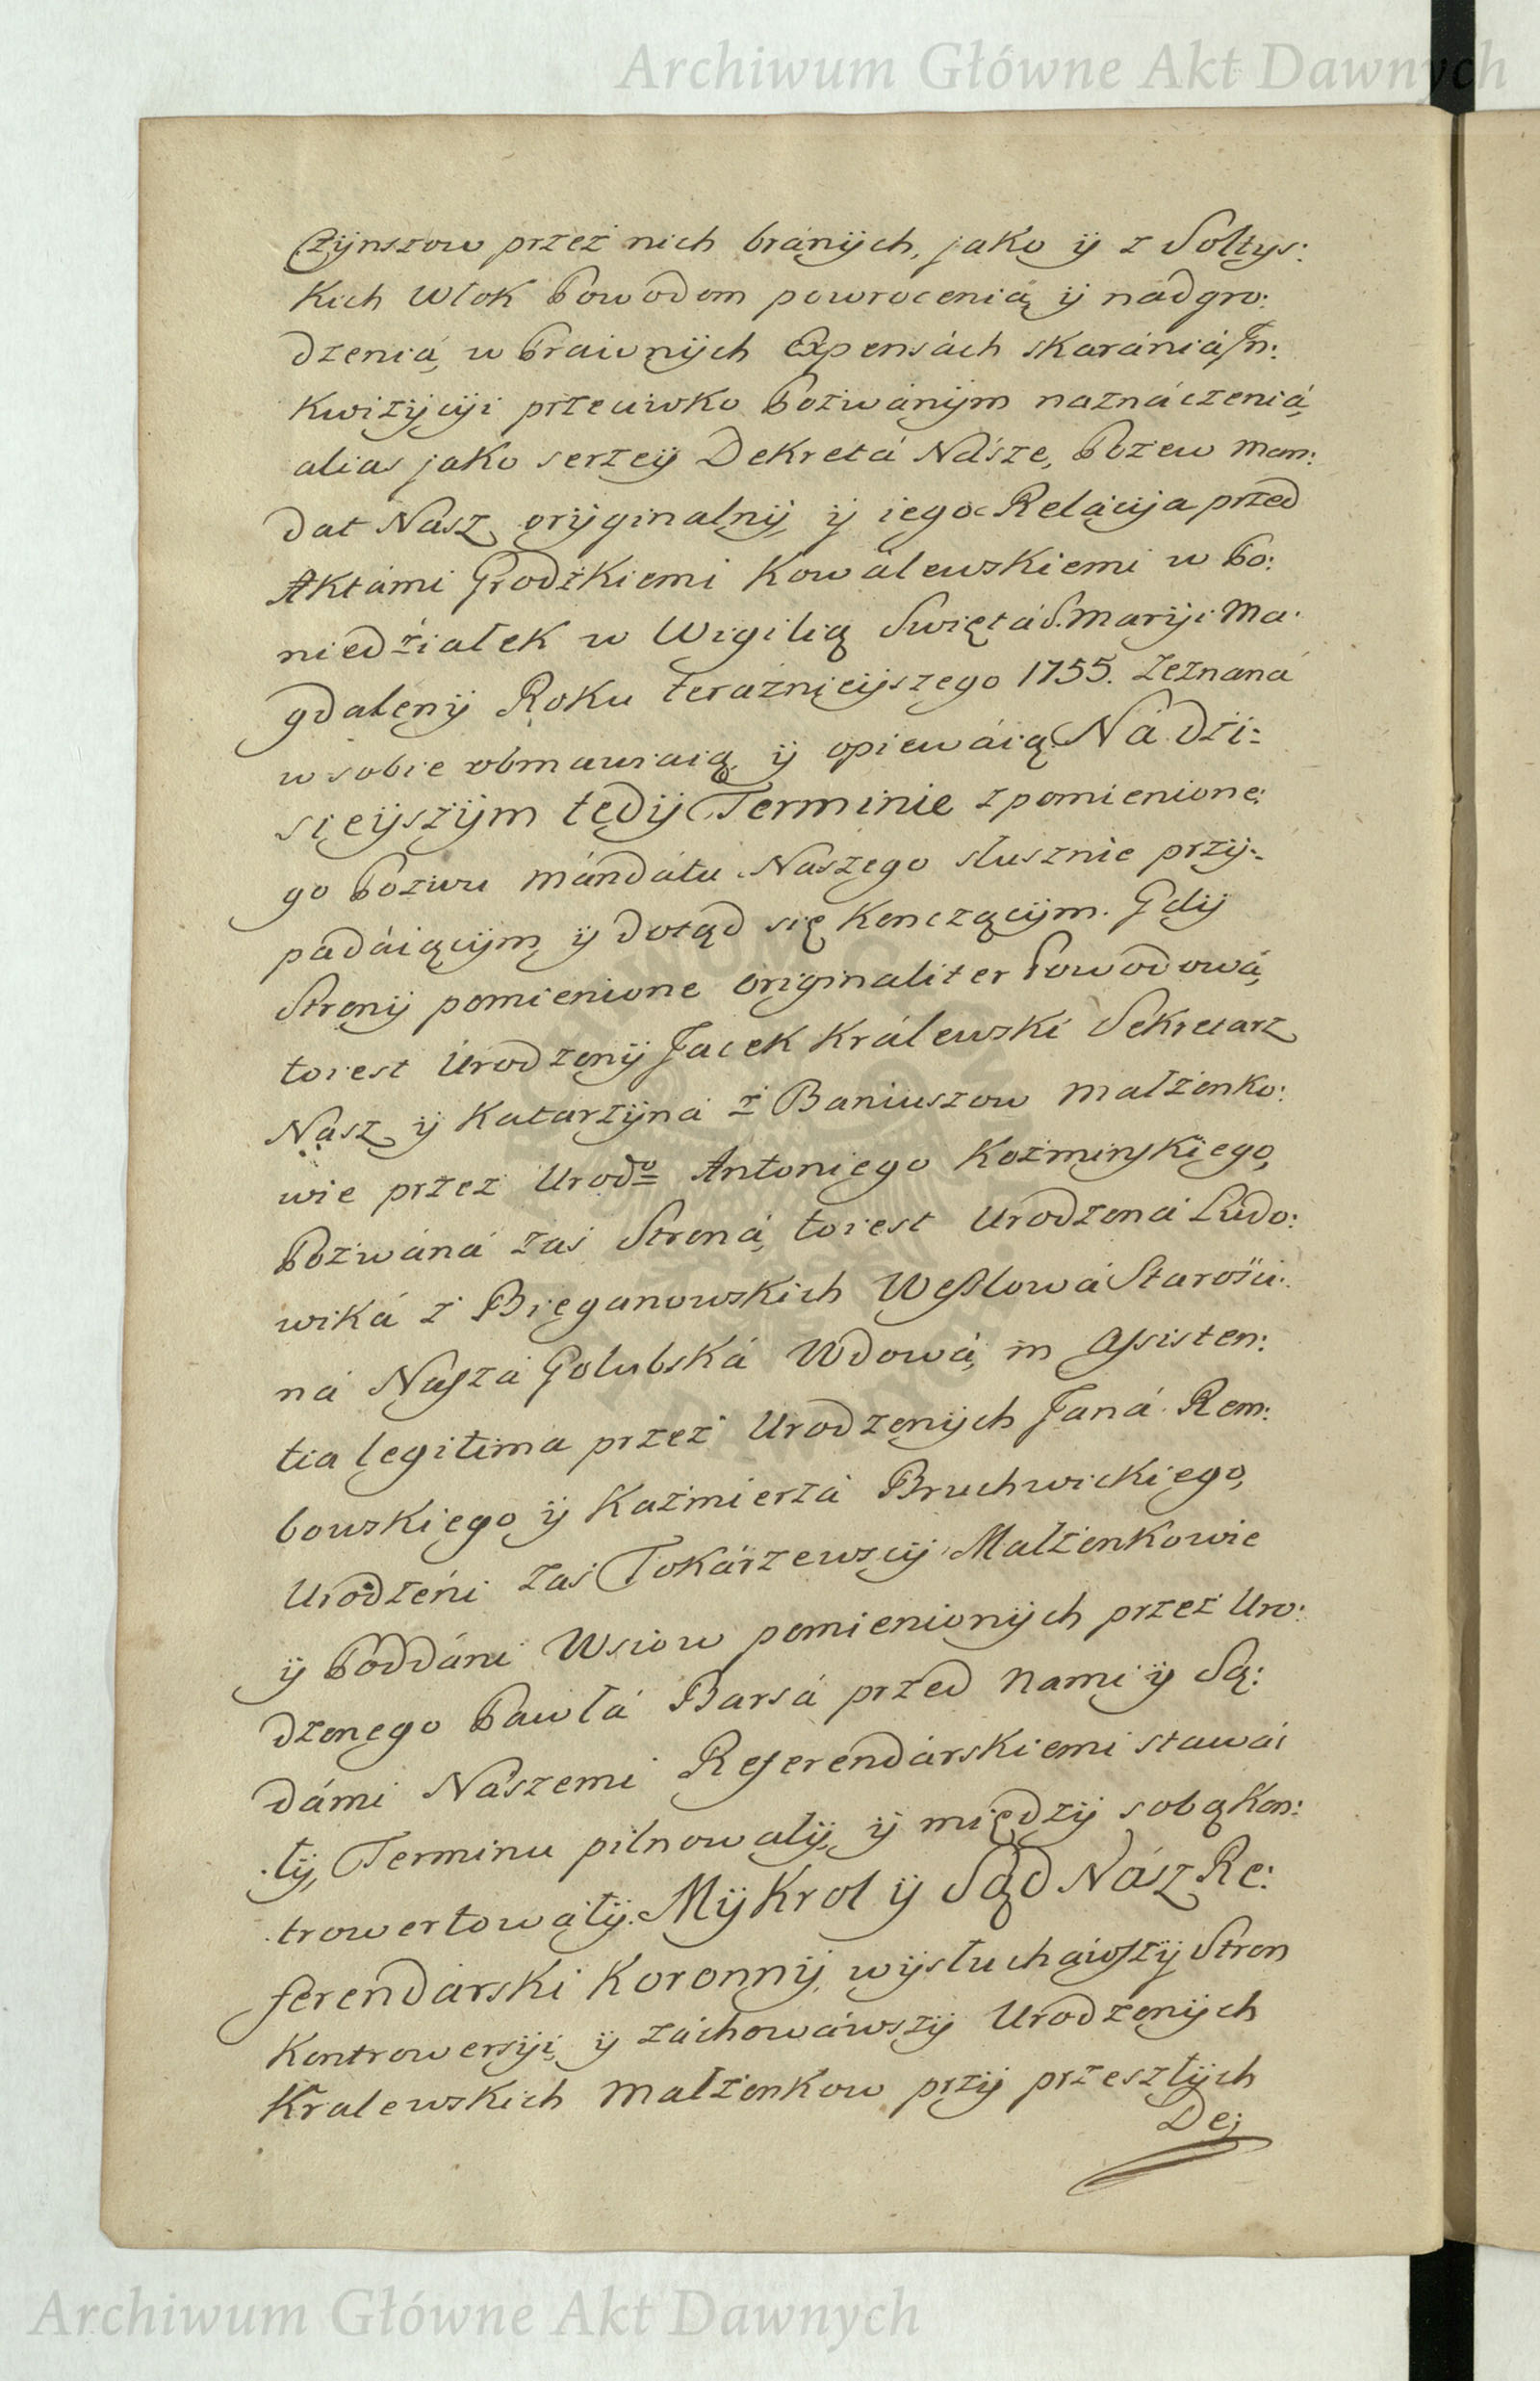 Archiwum Główne Akt Dawnych
Czÿnszow przez nich bránÿch, jako ÿ z Sołtys:
kich Włok Powodom powrocenią ÿ nádgro:
dzeniá, w Prawnÿch Expensách skárániá, In:
kwizÿcÿi przeciwko Pozwánÿm náznáczeniá,
alias jako serzeÿ Dekretá Násze, Pozew Man:
dat Nász orÿginalnÿ, ÿ iego Relácÿja przed
Aktámi Grodzkiemi Kowálewskiemi w Po:
niedźiałek w Wigilią Swiętá S. Marÿi Ma:
gdalenÿ Roku teráznieÿszego 1755. zeznaná
w sobie obmawiaią ÿ opiewáią. Ná dźi:
sieÿszÿm tedÿ Terminie z pomienione:
go Pozwu Mándátu Naszego słusznie przÿ:
padáiącÿm, ÿ dotąd się konczącÿm. Gdÿ
Stronÿ pomienione originaliter Powodowá,
toiest Urodzonÿ Jacek Králewski Sekretarz
Nász ÿ Katarzÿná z Baniuszow Małżonko:
wie przez Urodo Antoniego Koźminskiego,
Pozwáná zaś Stroná, toiest Urodzoná Ludo:
wiká z Bieganowskich Wesslowá Starośći:
ná Nászá Golubská Wdowá, in Assisten:
tia legitima przez Urodzonÿch Janá Rem:
bowskiego ÿ Kaźmierzá Bruchwickiego,
Urodzeni zaś Tokárzewscÿ Małżonkowie
ÿ Poddáni Wsiow pomienionÿch przez Uro:
dzonego Pawłá Barsá przed Nami ÿ Są:
dámi Nászemi Referendárskiemi stawa:
łÿ, Terminu pilnowałÿ, ÿ międzÿ sobą kon:
trowertowałÿ. Mÿ Krol ÿ Sąd Nász Re:
ferendárski Koronnÿ, wÿsłucháwszÿ Stron
Kontrowersÿi, ÿ záchowáwszÿ Urodzonÿch
Kralewskich Małżonkow przÿ przeszłÿch
De:
Archiwum Główne Akt Dawnych